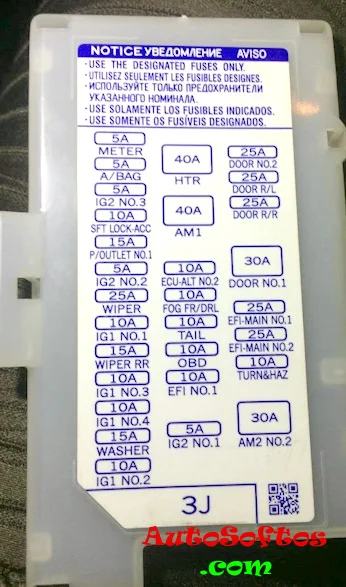 NOTICE УВЕДОМЛЕНИЕ AVISO
· USE THE DESIGNATED FUSES ONLY.
· UTILISEZ SEULEMENT LES FUSIBLES DESIGNES.
· ИСПОЛЬЗУЙТЕ ТОЛЬКО ПРЕДОХРАНИТЕЛИ
УКАЗАННОГО НОМИНАЛА.
· USE SOLAMENTE LOS FUSIBLES INDICADOS.
· USE SOMENTE OS FUSÍVEIS DESIGNADOS.
5A
METER
5A
A/BAG
5A
IG2 NO.3
10A
SFT LOCK-ACC
15A
P/OUTLET NO.1
5A
IG2 NO.2
25A
WIPER
10A
IG1 NO.1
15A
WIPER RR
10A
IG1 NO.3
10A
IG1 NO.4
15A
WASHER
10A
IG1 NO.2
40A
HTR
40A
AM1
10A
ECU-ALT NO.2
10A
FOG FR/DRL
10A
TAIL
10A
OBD
10A
EFI NO.1
5A
IG2 NO.1
25A
DOOR NO.2
25A
DOOR R/L
25A
DOOR R/R
30A
DOOR NO.1
25A
EFI-MAIN NO.1
25A
EFI-MAIN NO.2
10A
TURN&HAZ
30A
AM2 NO.2
3J
AutoSoftos
.com